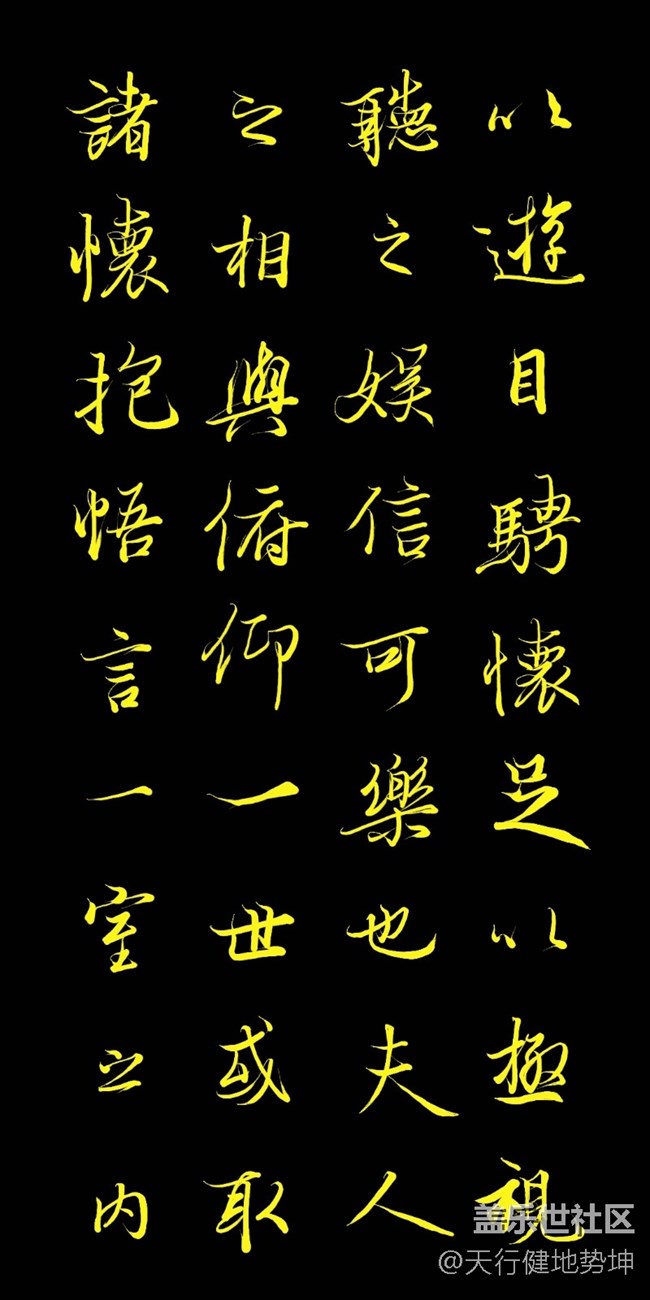 以遊目騁懷足以極視
聽之娛信可樂也夫人
之相與俯仰一世或取
諸懷抱悟言一室之內
盖乐世社区
@天行健地势坤